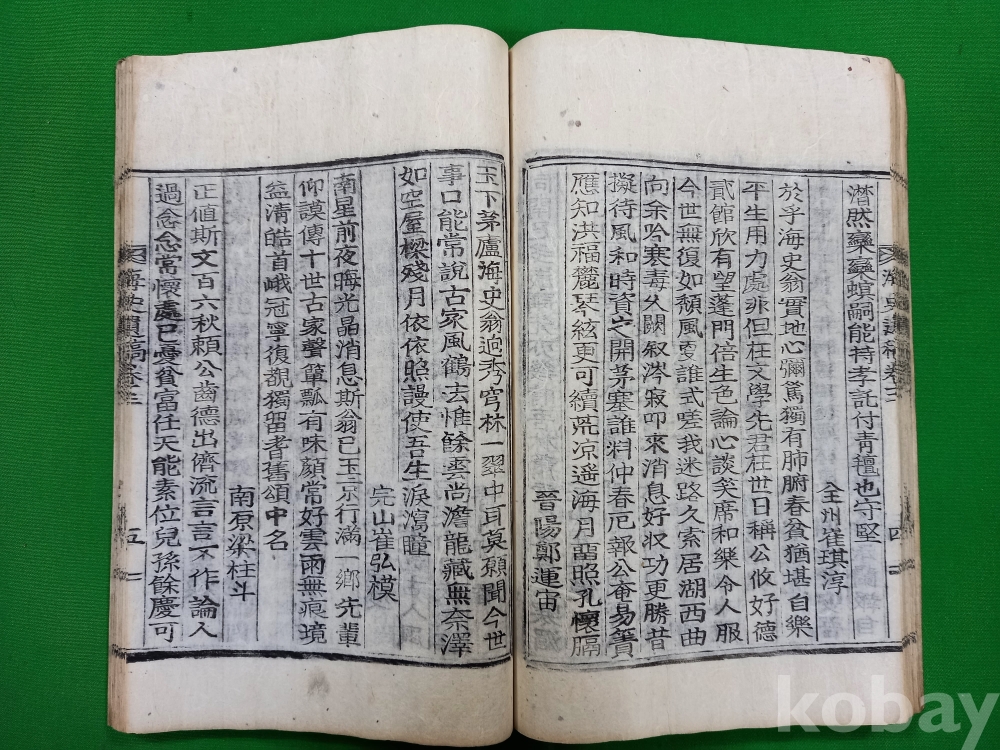 潸然蠡蠡螆嗣能特孝託付靑氊也守堅
全州崔琪淳
於乎海史翁實地心彌篤獨有肺腑春貧猶堪自樂
平生用力處非但在文學先君在世日稱公攸好德
貳館欣有望蓬門倍生色論心談笑席和樂令人服
今世無復如頹風更誰式嗟我迷路久索居湖西曲
向余吟寒毒久闕叙涔寂叩來消息好収功更勝昔
擬待風和時資以開茅塞誰料仲春厄報公奄易簀
應知洪福麓琴絃更可續荒凉遥海月照孔懷膈
晉陽鄭運宙
海史遺稿卷三
四
玉下茅廬海史翁逈秀穹林一翠中耳莫願聞今世
事口能常說古家風鶴去惟餘雲尚澹龍藏無奈澤
如空屋樑殘月依依照謾使吾生淚瀉瞳
完山崔弘模
南星前夜晦光晶消息斯翁已玉京行滿一鄉先輩
仰謨傳十世古家聲簞瓢有味顏常好雲雨無痕境
益清皓首峨冠寧復覩獨留耆舊頌中名
南原梁柱斗
正値斯文百六秋賴公齒德出儕流言言不作論人
過念念常懷處己憂貧富任天能素位兒孫餘慶可
海史遺稿卷三
五
kobay